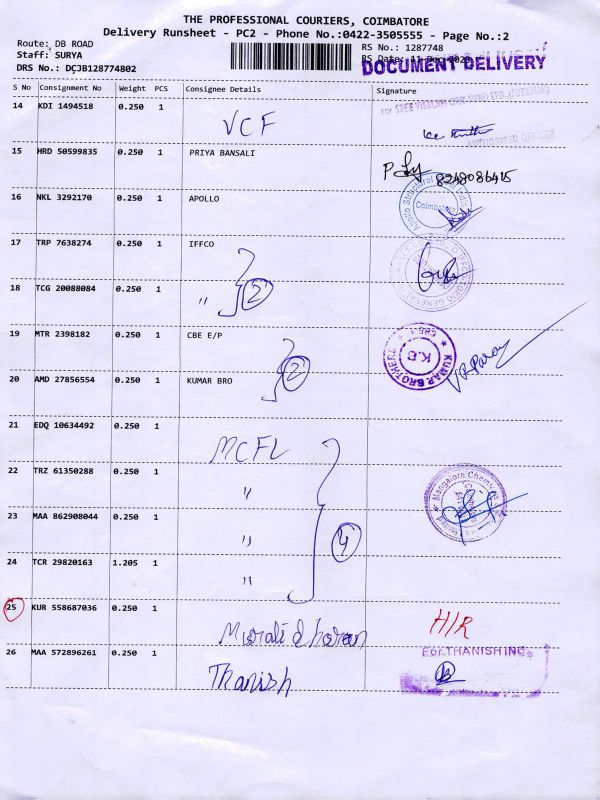 THE PROFESSIONAL COURIERS, COIMBATORE
Delivery Runsheet - PC2 - Phone No.:0422-3505555 - Page No.:2
Route: DB ROAD
Staff: SURYA
DRS No.: DCJB128774802
RS No.: 1287748
RS Date:
DOCUMENT DELIVERY
S No Consignment No Weight PCS Consignee Details Signature
14 KDI 1494518 0.250 1 VCF
AUTHORISED OFFICER
15 HRD 50599835 0.250 1 PRIYA BANSALI
8248086415
16 NKL 3292170 0.250 1 APOLLO
Apollo Structural
Coimbatore
17 TRP 7638274 0.250 1 IFFCO
18 TCG 20088084 0.250 1 " 2
19 MTR 2398182 0.250 1 CBE E/P
KUMAR BROTHERS
K.B
CBE-1
20 AMD 27856554 0.250 1 KUMAR BRO 2
21 EDQ 10634492 0.250 1 MCFL
22 TRZ 61350288 0.250 1 "
Mangalore Chemicals
23 MAA 862908044 0.250 1 " 4
24 TCR 29820163 1.205 1 "
25 KUR 558687036 0.250 1 Muralidharan H/R
26 MAA 572896261 0.250 1 Thanish
For.THANISH INC.